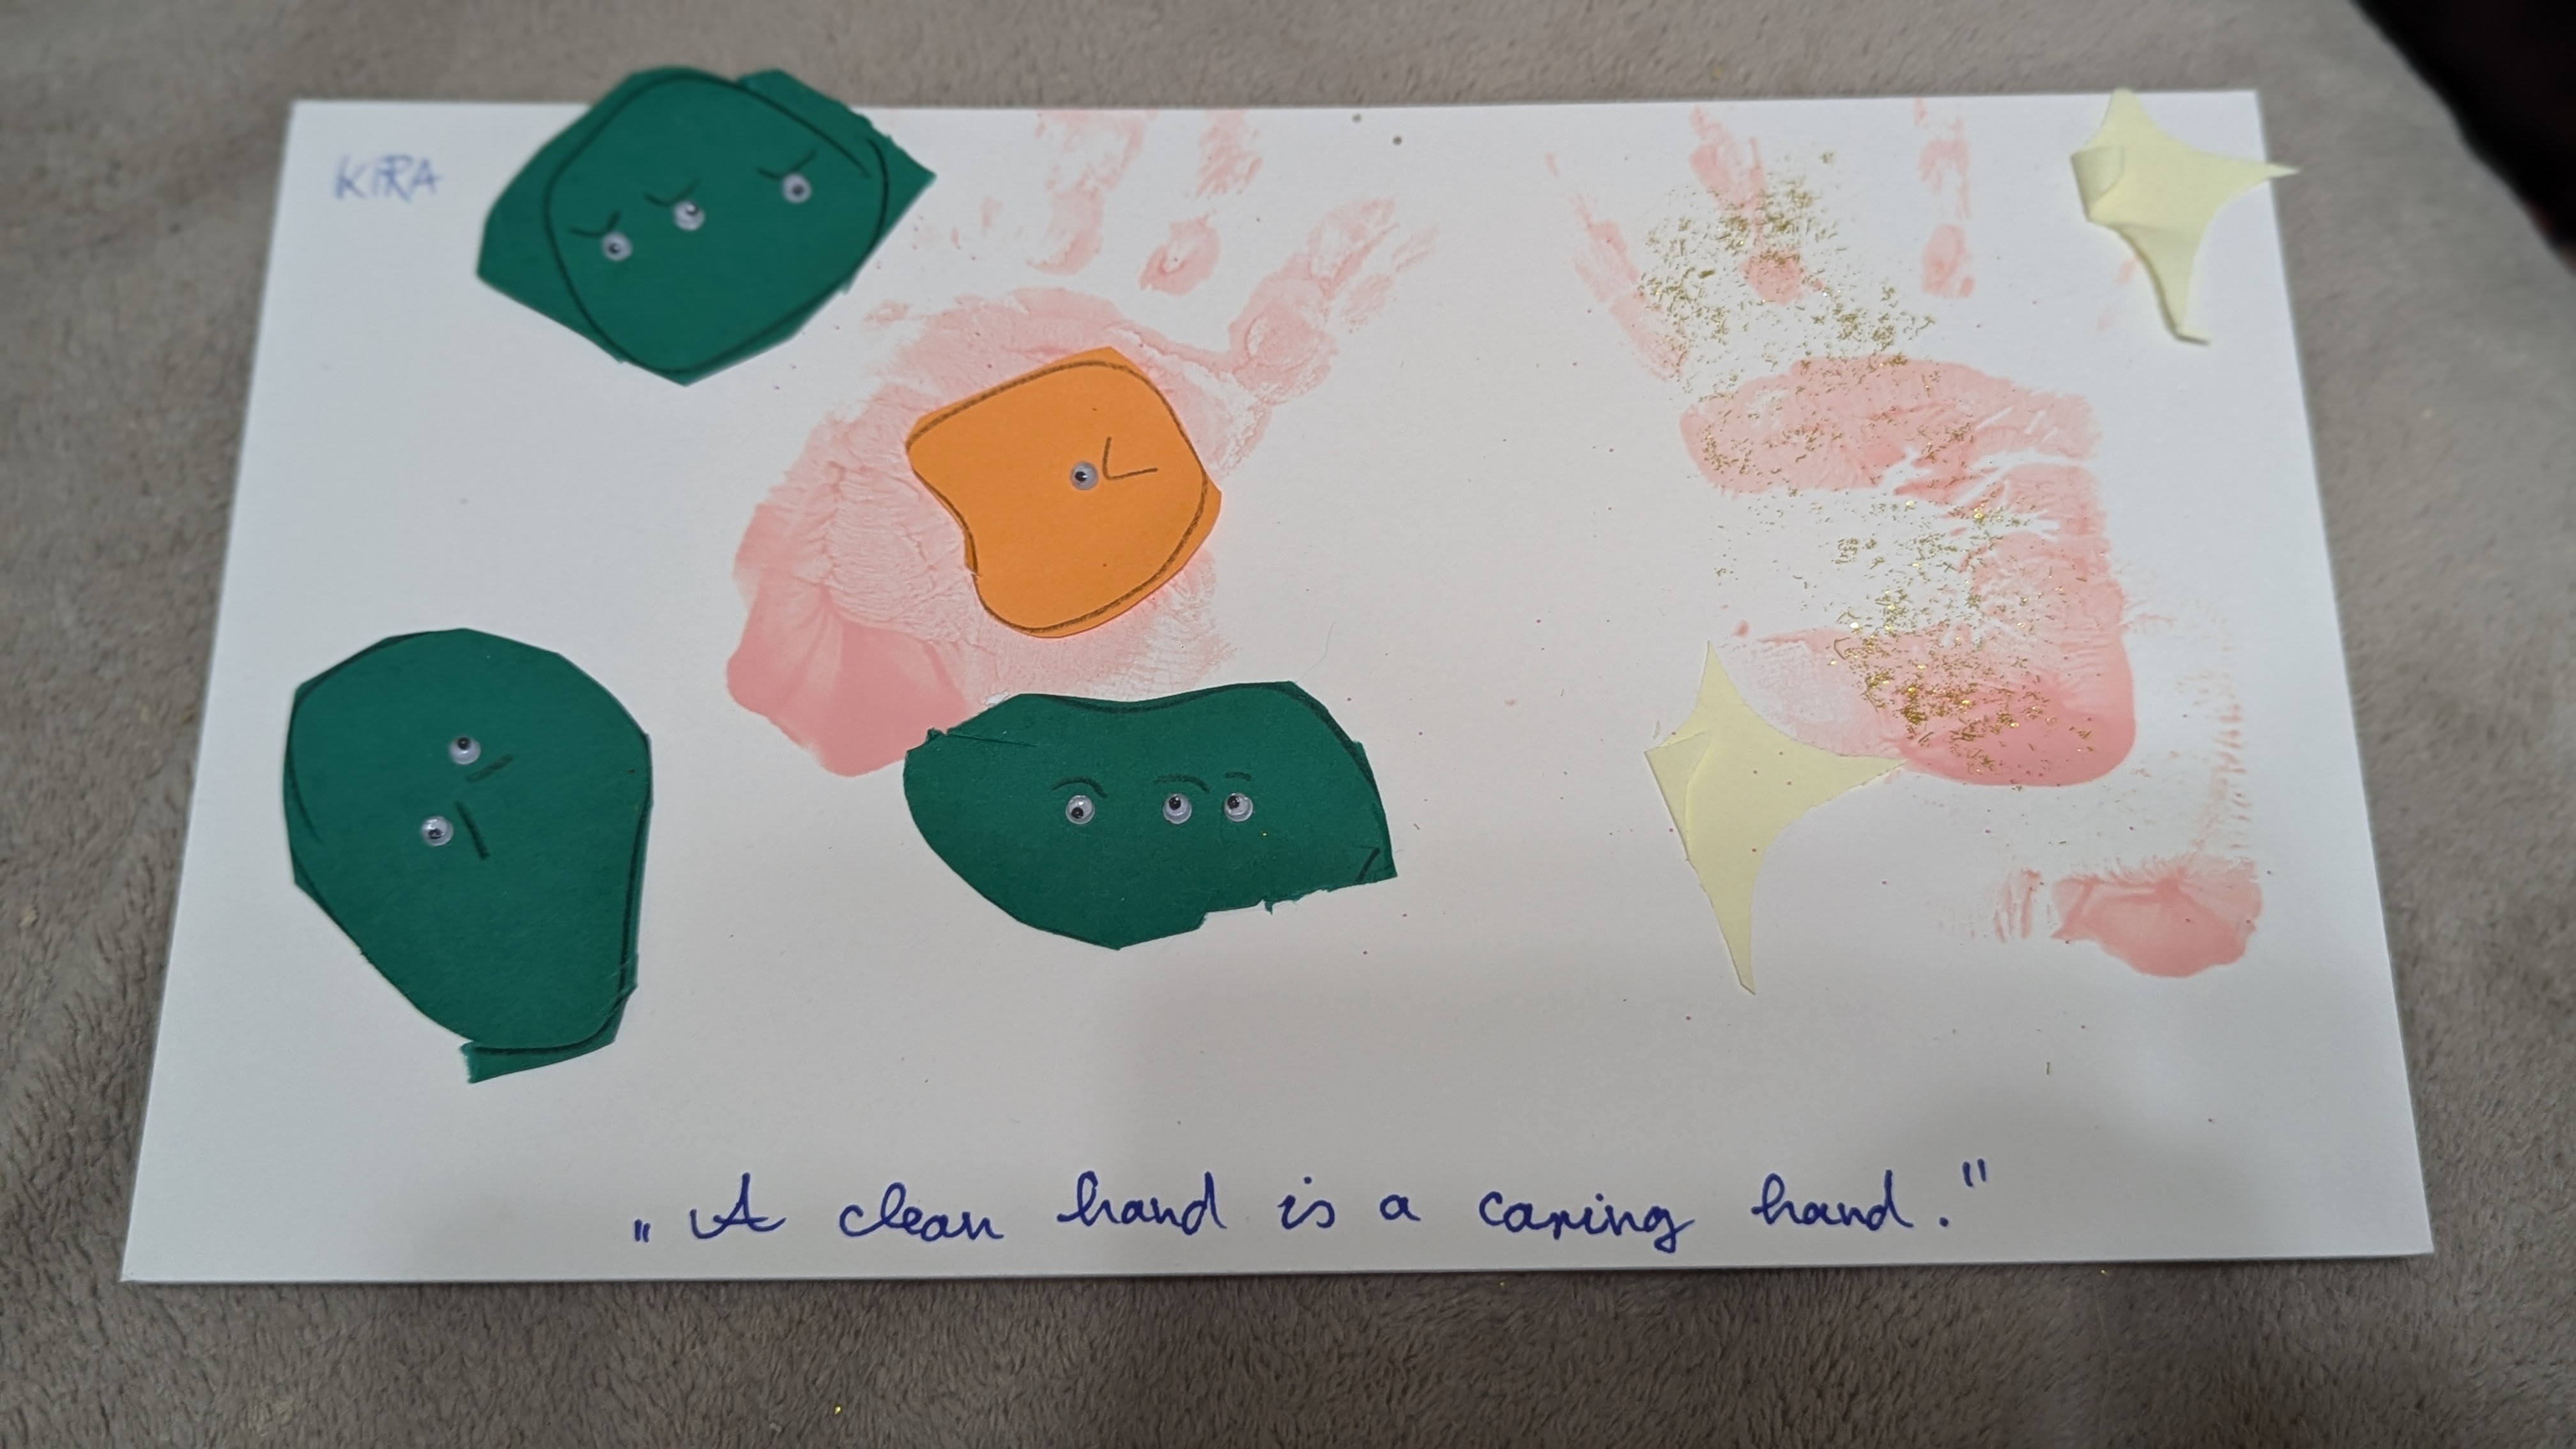 KIRA
„A clean hand is a caring hand."